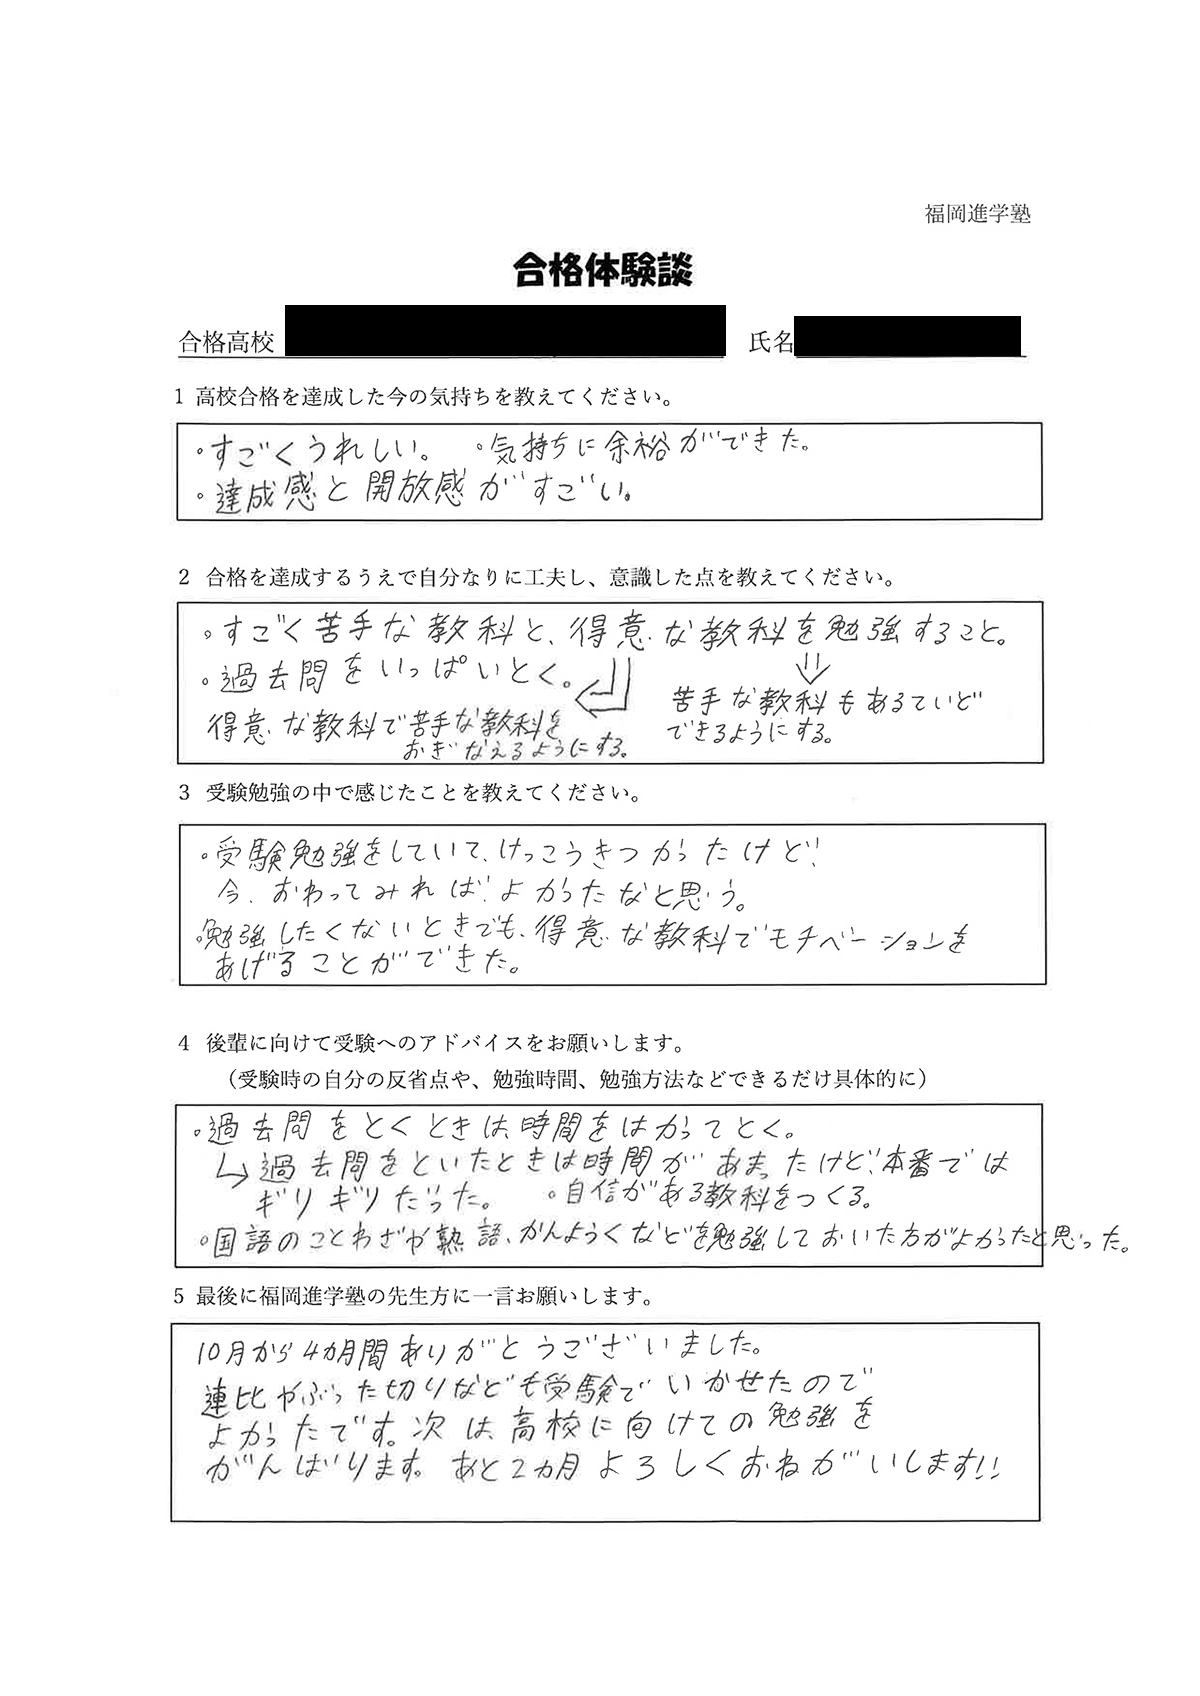 福岡進学塾
合格体験談
合格高校 氏名
1 高校合格を達成した今の気持ちを教えてください。
・すごくうれしい。 ・気持ちに余裕ができた。
・達成感と開放感がすごい。
2 合格を達成するうえで自分なりに工夫し、意識した点を教えてください。
・すごく苦手な教科と、得意な教科を勉強すること。
・過去問をいっぱいとく。
苦手な教科もあるていど
できるようにする。
得意な教科で苦手な教科を
おぎなえるようにする。
3 受験勉強の中で感じたことを教えてください。
・受験勉強をしていて、けっこうきつかったけど、
今、おわってみれば、よかったなと思う。
・勉強したくないときでも、得意な教科でモチベーションを
あげることができた。
4 後輩に向けて受験へのアドバイスをお願いします。
（受験時の自分の反省点や、勉強時間、勉強方法などできるだけ具体的に）
・過去問をとくときは、時間をはかってとく。
↳過去問をといたときは時間があまったけど、本番では
ギリギリだった。 ・自信がある教科をつくる。
・国語のことわざや熟語、かんようくなどを勉強しておいた方がよかったと思った。
5 最後に福岡進学塾の先生方に一言お願いします。
10月から4カ月間ありがとうございました。
連比やぶった切りなども受験でいかせたので
よかったです。次は、高校に向けての勉強を
がんばります。あと2カ月よろしくおねがいします!!